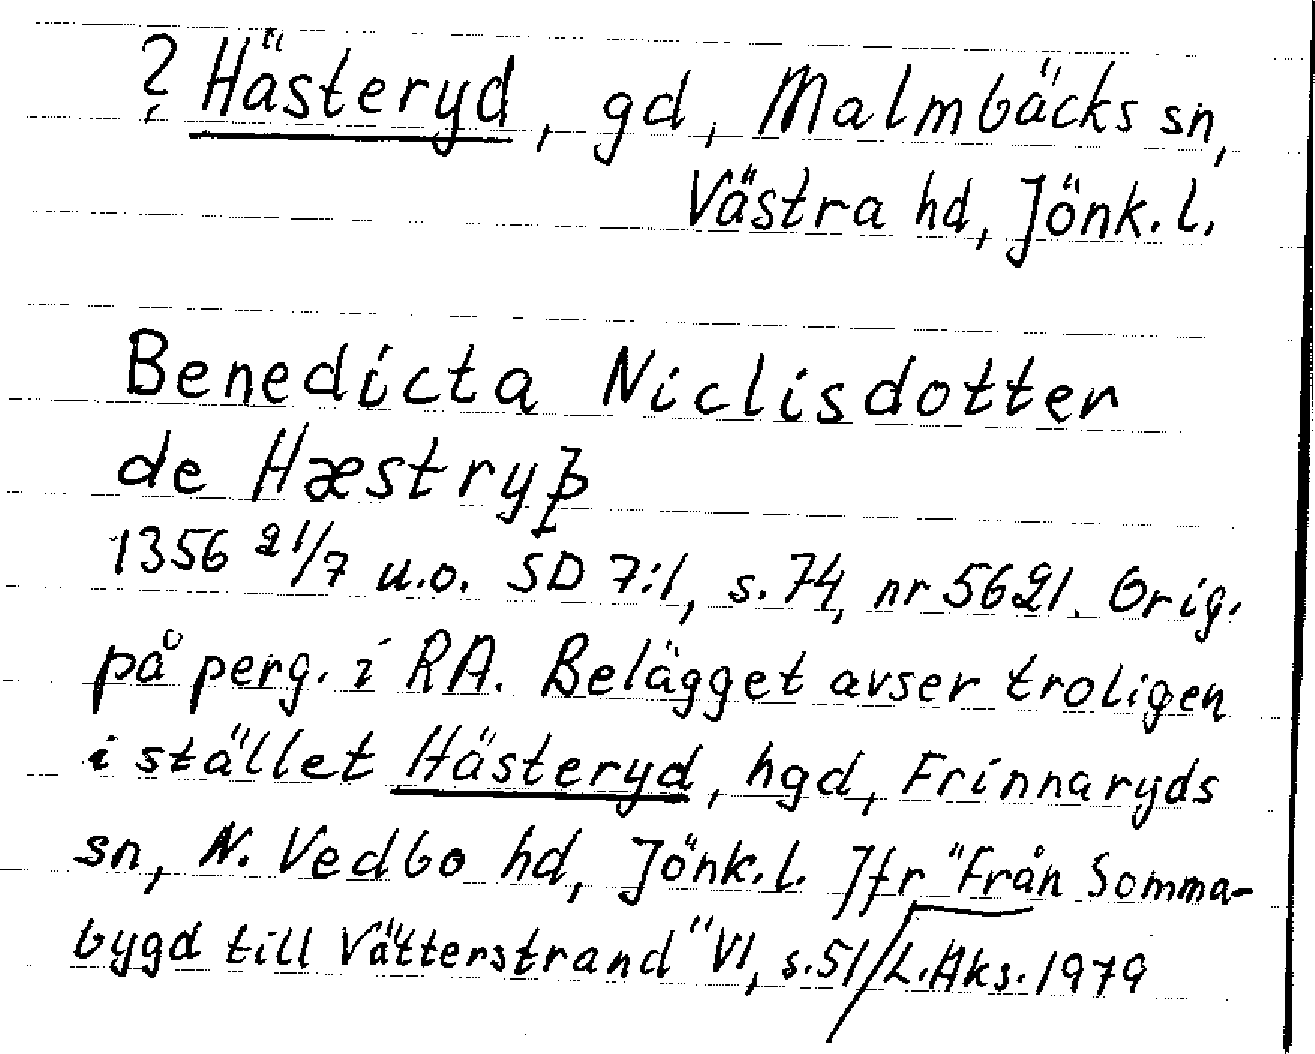 ? Hästeryd, gd, Malmbäcks sn,
Västra hd, Jönk. l.
Benedicta Niclisdotter
de Hæstryꝥ
1356 21/7 u.o. SD 7:1, s. 74, nr 5621. Orig.
på perg. i RA. Belägget avser troligen
i stället Hästeryd, hgd, Frinnaryds
sn, N. Vedbo hd, Jönk. l. Jfr "Från Somma-
bygd till Vätterstrand" VI, s. 51/L. Aks. 1979